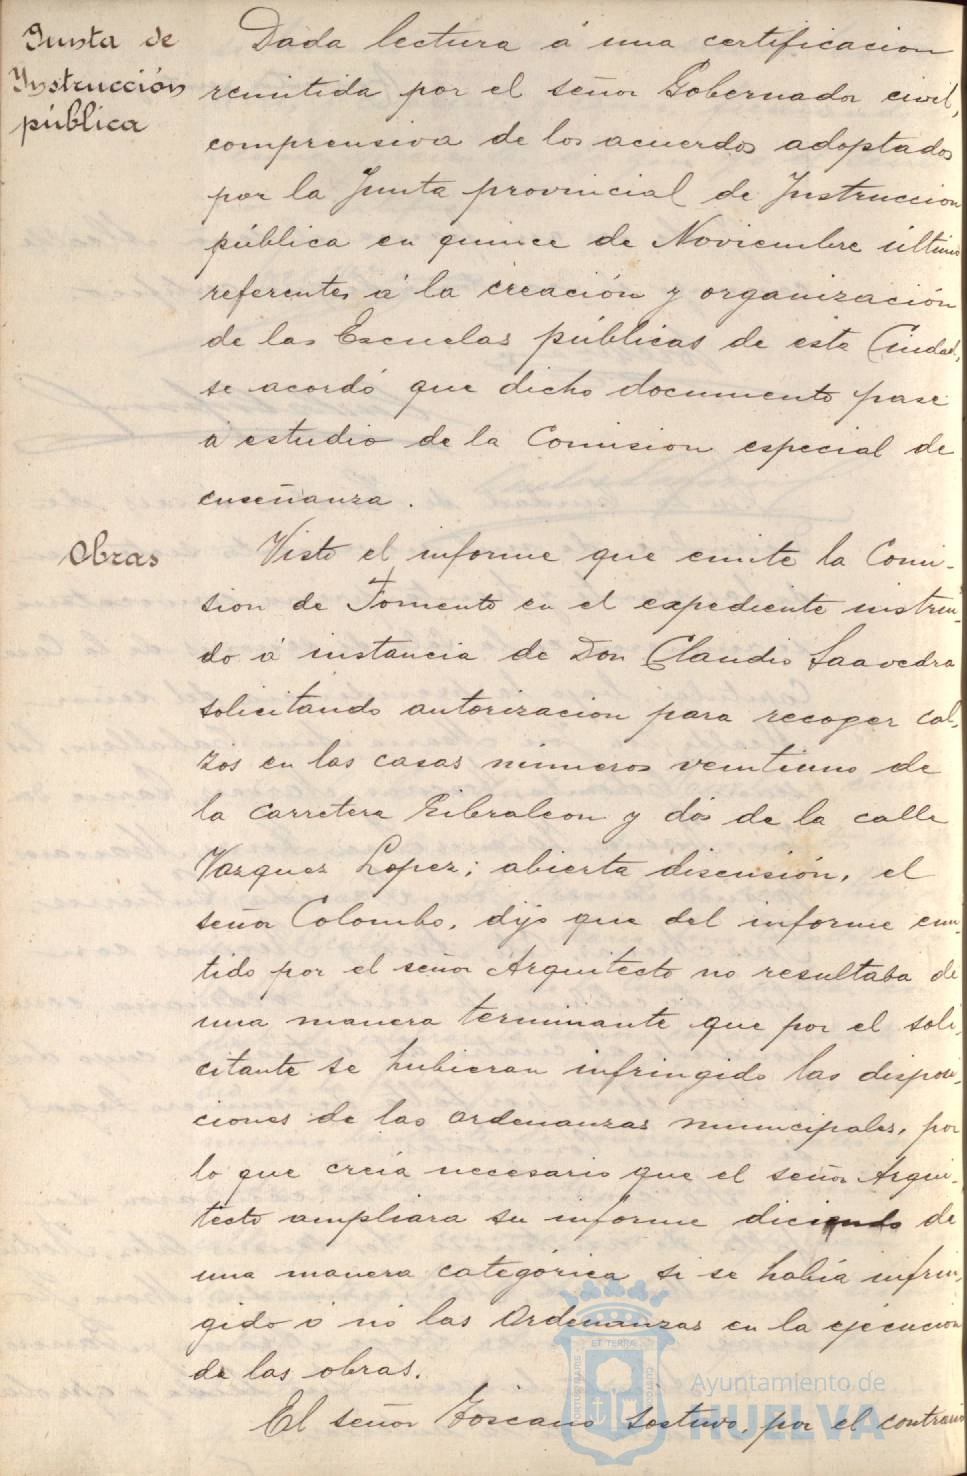 Junta de
Instrucción
pública
Dada lectura á una certificacion
remitida por el señor Gobernador civil,
comprensiva de los acuerdos adoptados
por la Junta provincial de Instruccion
pública en quince de Noviembre último
referentes á la creación y organización
de las Escuelas públicas de esta Ciudad,
se acordó que dicho documento pase
á estudio de la Comision especial de
enseñanza.
Obras
Visto el informe que emite la Comi-
sion de Fomento en el expediente instrui-
do á instancia de Don Claudio Saavedra
solicitando autorizacion para recoger cal-
zos en las casas números veintiuno de
la carretera Gibraleon y dós de la calle
Vazquez Lopez; abierta discusión, el
señor Colombo, dijo que del informe emi-
tido por el señor Arquitecto no resultaba de
una manera terminante que por el soli-
citante se hubieran infringido las disposi-
ciones de las ordenanzas municipales, por
lo que creía necesario que el señor Arqui-
tecto ampliara su informe diciendo de
una manera categórica si se habia infrin-
gido ó nó las Ordenanzas en la ejecucion
de las obras.
El señor Toscano sostuvo, por el contrario
PORTUS MARIS
ET TERRÆ
CUSTODIA
Ayuntamiento de
HUELVA